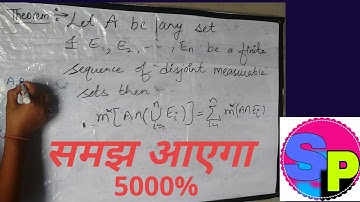 Theorem :- Let A be any set
& E₁, E₂, - - -, Eₙ be a finite
sequence of disjoint measurable
sets then
m*[A∩(⋃ⁿᵢ₌₁ Eᵢ)] = ∑ⁿᵢ₌₁ m*(A∩Eᵢ)
समझ आएगा
5000%
SP